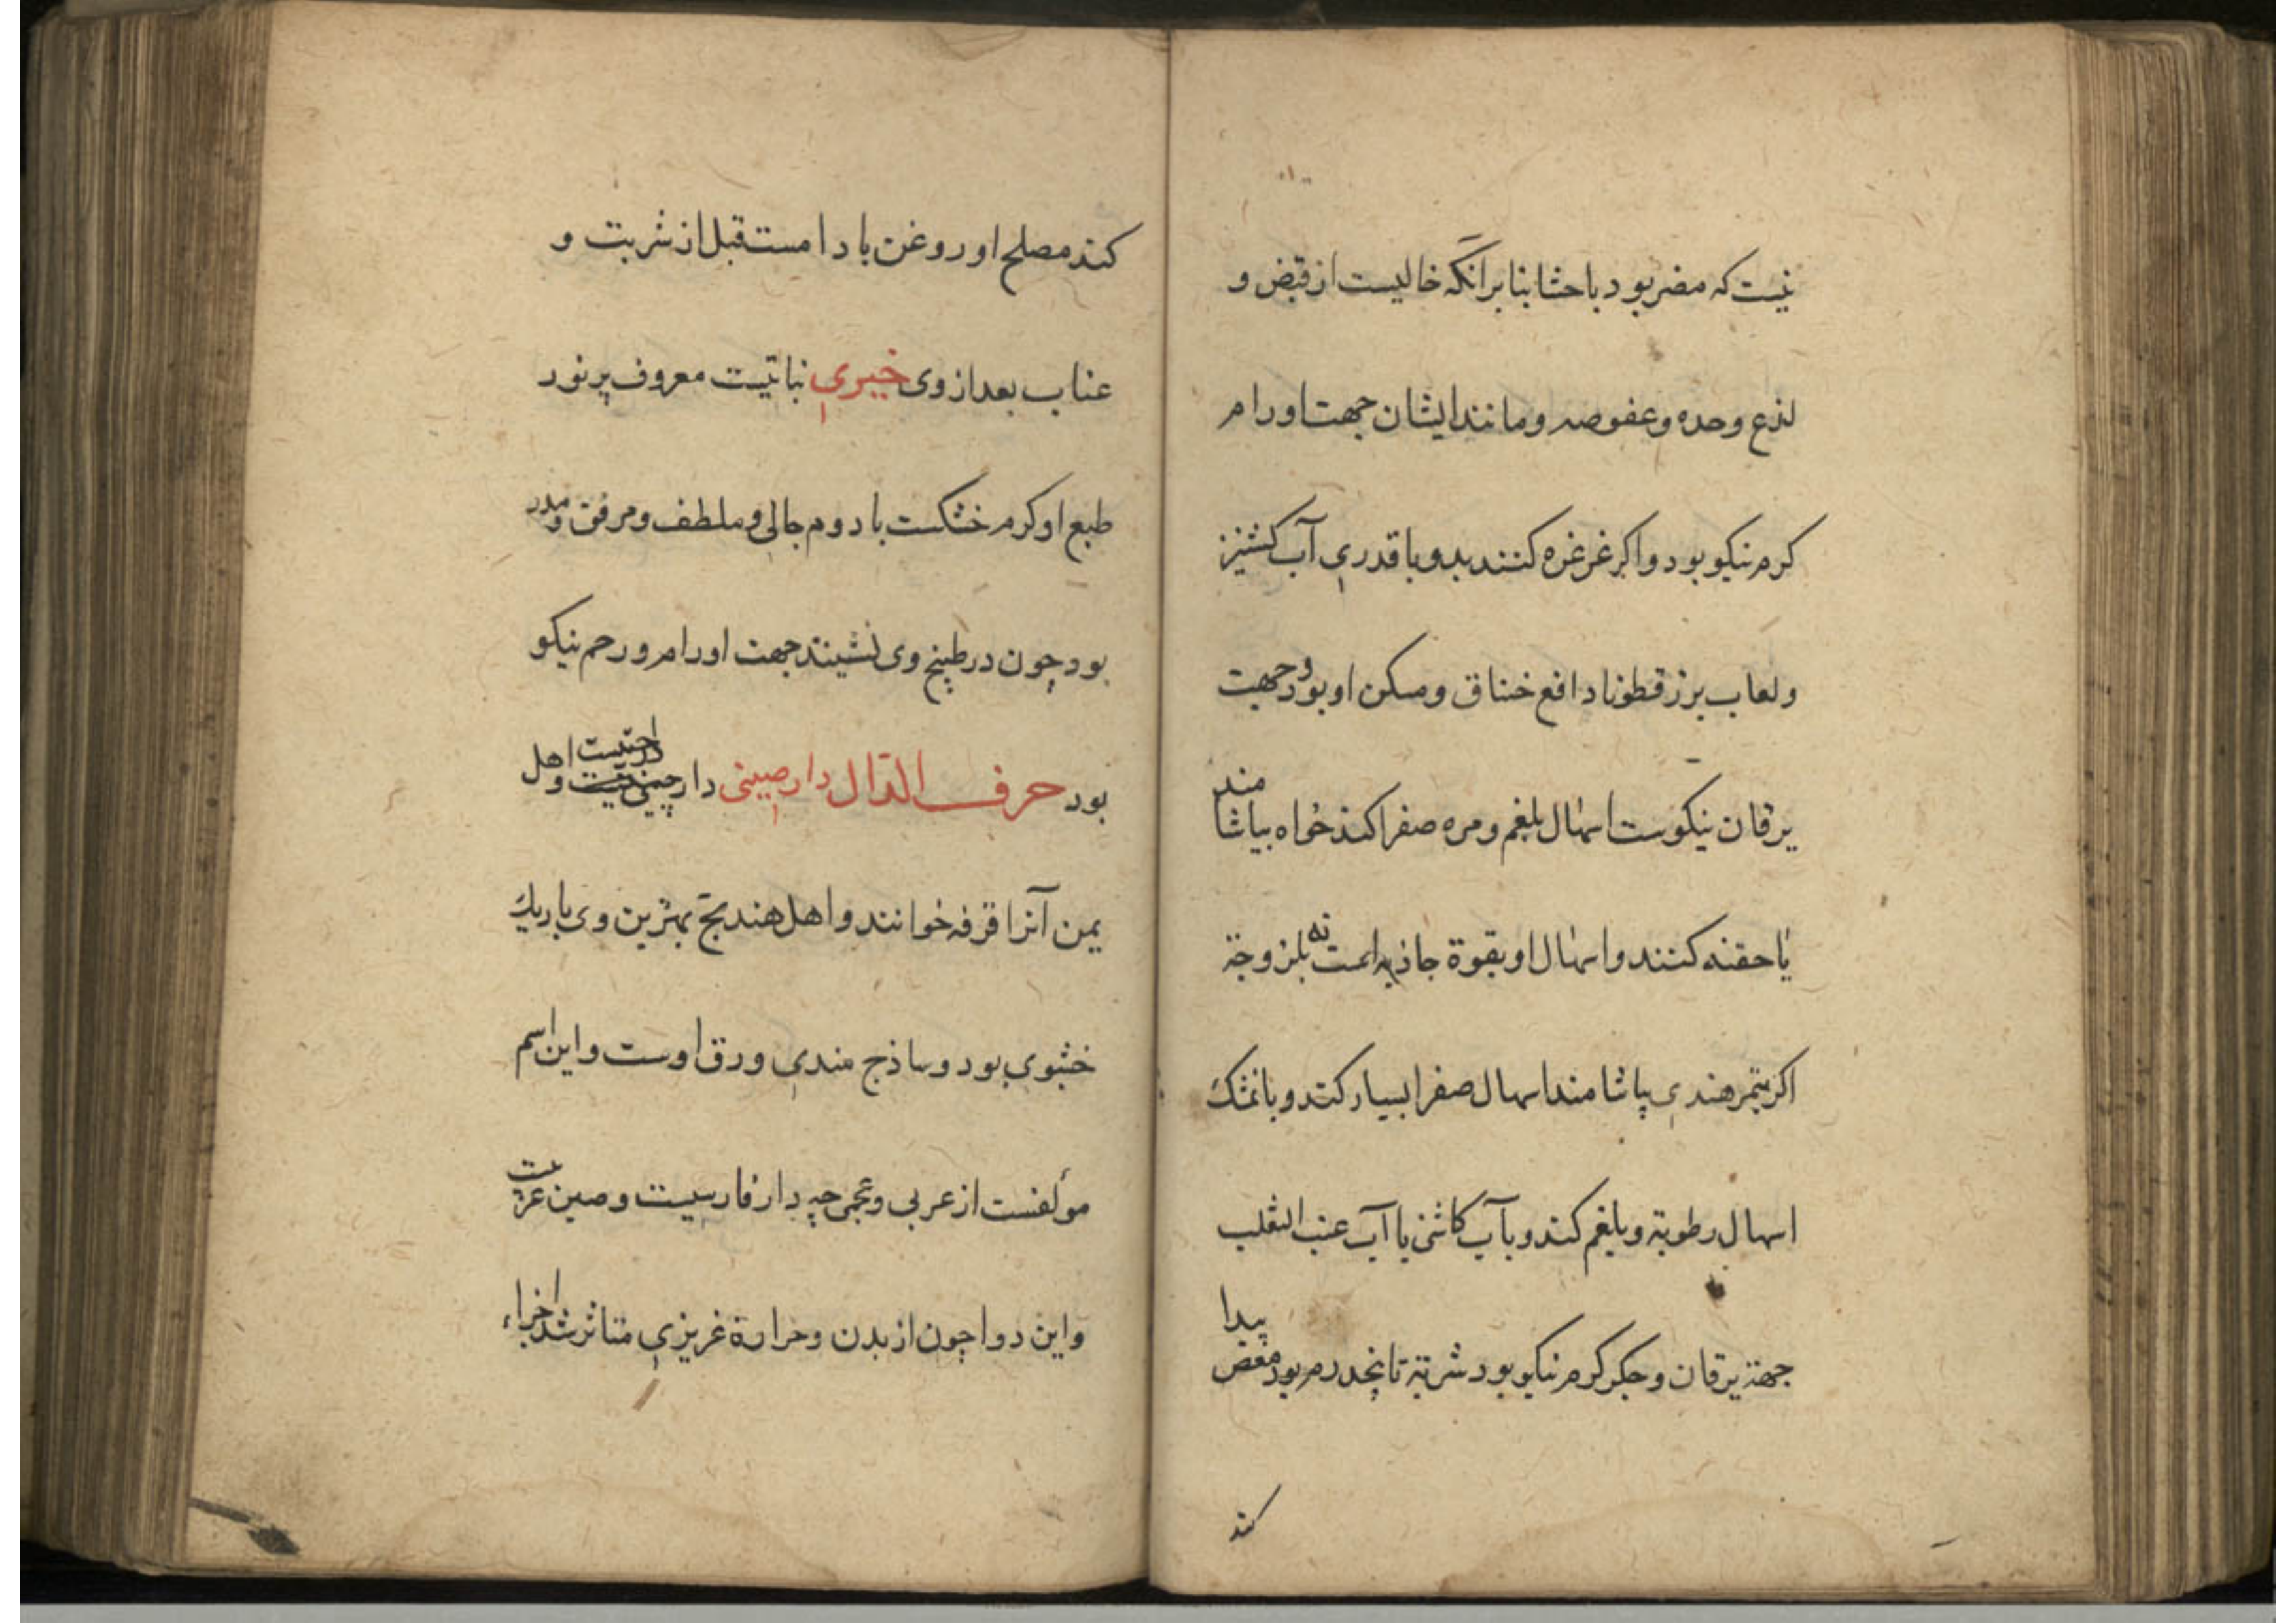 نیست که مضر بود باحشا بنا برانکه خالیست از قبض و
لذع و حده و عفوصه و مانند ایشان جهت اورام
کرم نیکو بود و اکر غرغره کنند بدو با قدری آب کشنیز
و لعاب بزرقطونا دافع خناق و مسکن او بود و جهت
یرقان نیکوست اسهال بلغم و مره صفرا کند خواه بیاشامند
یا حقنه کنند و اسهال او بقوة جاذبه است نه بلزوجة
اکر بتمر هندی بیاشامند اسهال صفرا بسیار کند و با نمشک
اسهال رطوبة و بلغم کند و بآب کاشنی یا آب عنب الثعلب
جهة یرقان و جکر کرم نیکو بود شربة تا پنجدرم بود مغض پیدا
کند
کند مصلح او روغن بادام ست قبل از شربت و
عناب بعد از وی خیری نباتیست معروف پر نور
طبع او کرم خشکست با دوم جالی و ملطف و مرفق و مدر
بود چون در طبیخ وی نشینند جهت اورام و رحم نیکو
بود حرف الدال دارصینی دارچینی درختیست و اهل
یمن آنرا قرفه خوانند و اهل هند تج بهترین وی باریک
خشبوی بود و ساذج هندی ورق اوست و این اسم
مولفست از عربی و عجمی چه دار فارسیست و صین عربیت
و این دوا چون از بدن و حرارة غریزی متاثر شد اجزاء